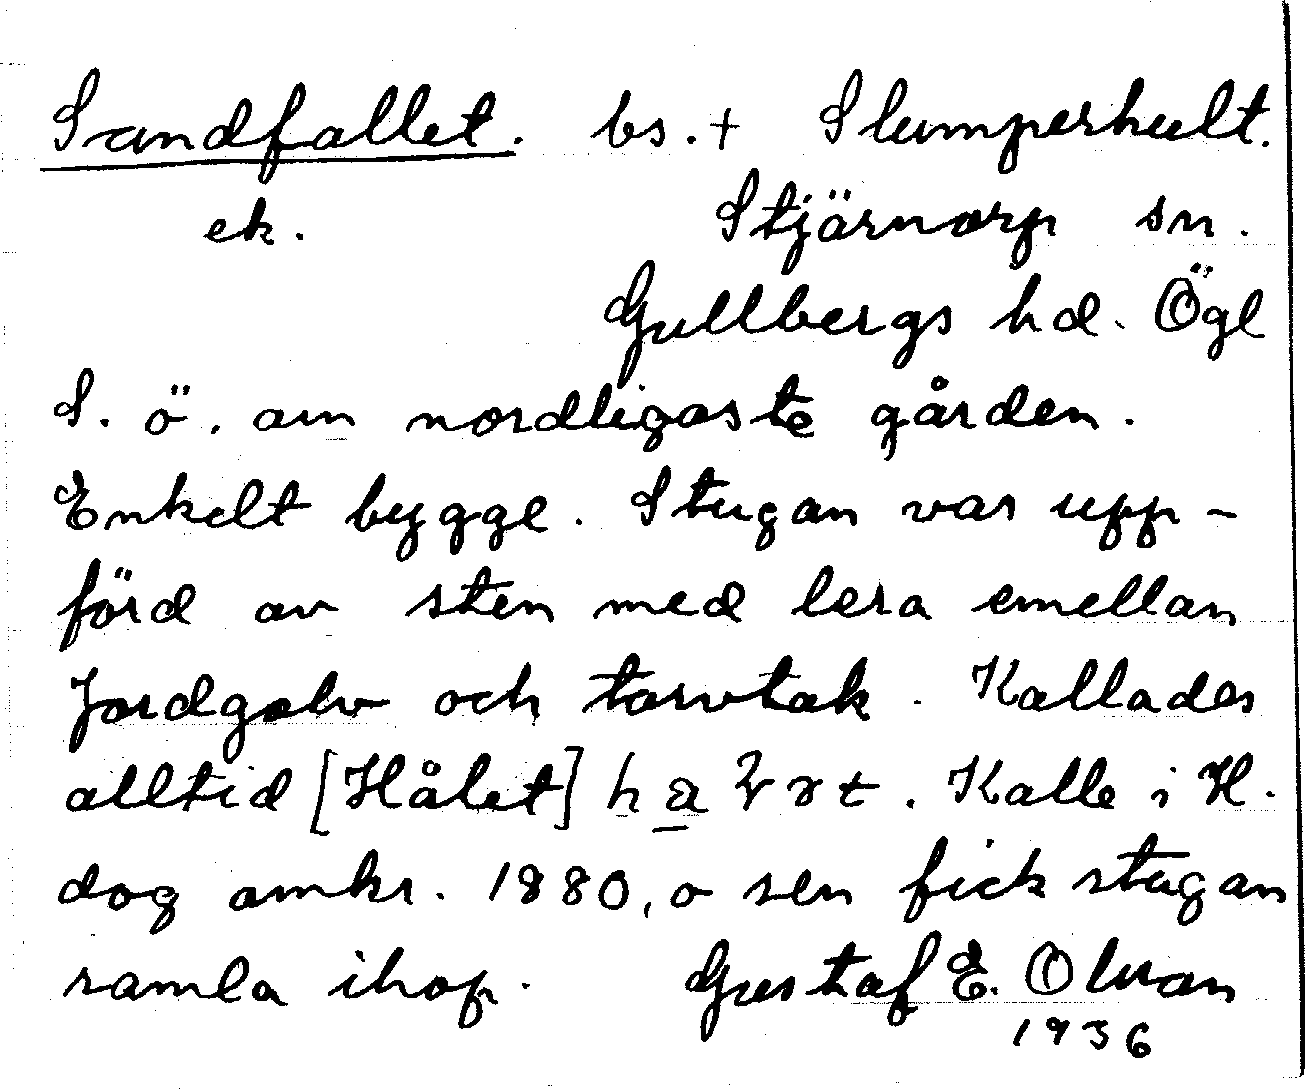 Sandfallet. bs.+ Slumperhult.
ek. Stjärnorp sn.
Gullbergs hd. Ögl
S. ö. om nordligaste gården.
Enkelt bygge. Stugan var upp-
förd av sten med lera emellan
Jordgolv och torvtak. Kallades
alltid [Hålet] Kalle i H.
dog omkr. 1880, o sen fick stugan
ramla ihop. Gustaf E. Olson
1936